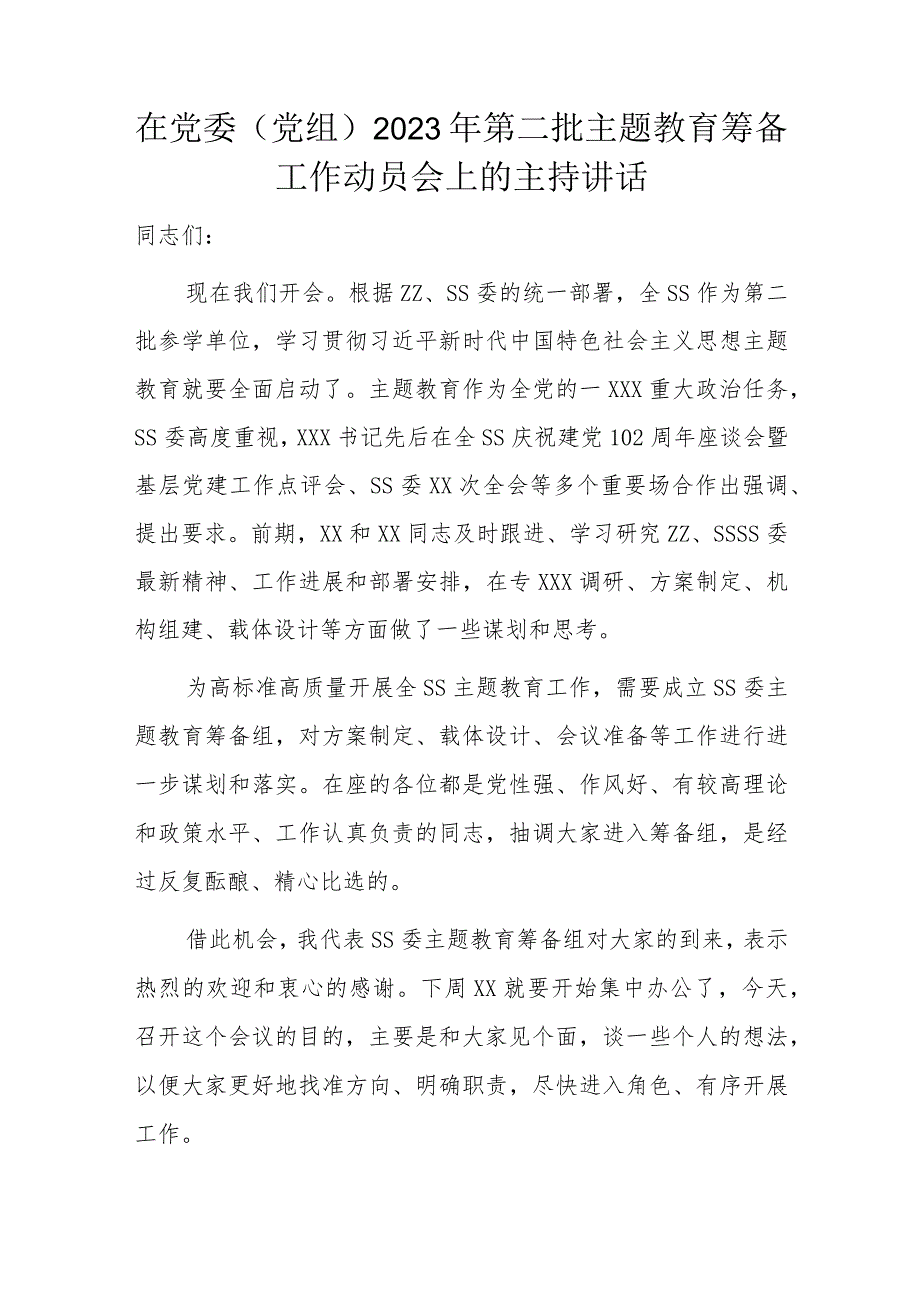 在党委（党组）2023年第二批主题教育筹备
工作动员会上的主持讲话
同志们：
现在我们开会。根据ZZ、SS委的统一部署，全SS作为第二
批参学单位，学习贯彻习近平新时代中国特色社会主义思想主题
教育就要全面启动了。主题教育作为全党的一XXX重大政治任务，
SS委高度重视，XXX书记先后在全SS庆祝建党102周年座谈会暨
基层党建工作点评会、SS委XX次全会等多个重要场合作出强调、
提出要求。前期，XX和XX同志及时跟进、学习研究ZZ、SSSS委
最新精神、工作进展和部署安排，在专XXX调研、方案制定、机
构组建、载体设计等方面做了一些谋划和思考。
为高标准高质量开展全SS主题教育工作，需要成立SS委主
题教育筹备组，对方案制定、载体设计、会议准备等工作进行进
一步谋划和落实。在座的各位都是党性强、作风好、有较高理论
和政策水平、工作认真负责的同志，抽调大家进入筹备组，是经
过反复酝酿、精心比选的。
借此机会，我代表SS委主题教育筹备组对大家的到来，表示
热烈的欢迎和衷心的感谢。下周XX就要开始集中办公了，今天，
召开这个会议的目的，主要是和大家见个面，谈一些个人的想法，
以便大家更好地找准方向、明确职责，尽快进入角色、有序开展
工作。